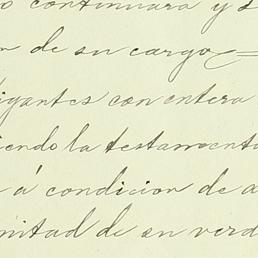 o continuara y s
n de su cargo
igantes con entera
iendo la testamenta
á condicion de a
mitad de su verd